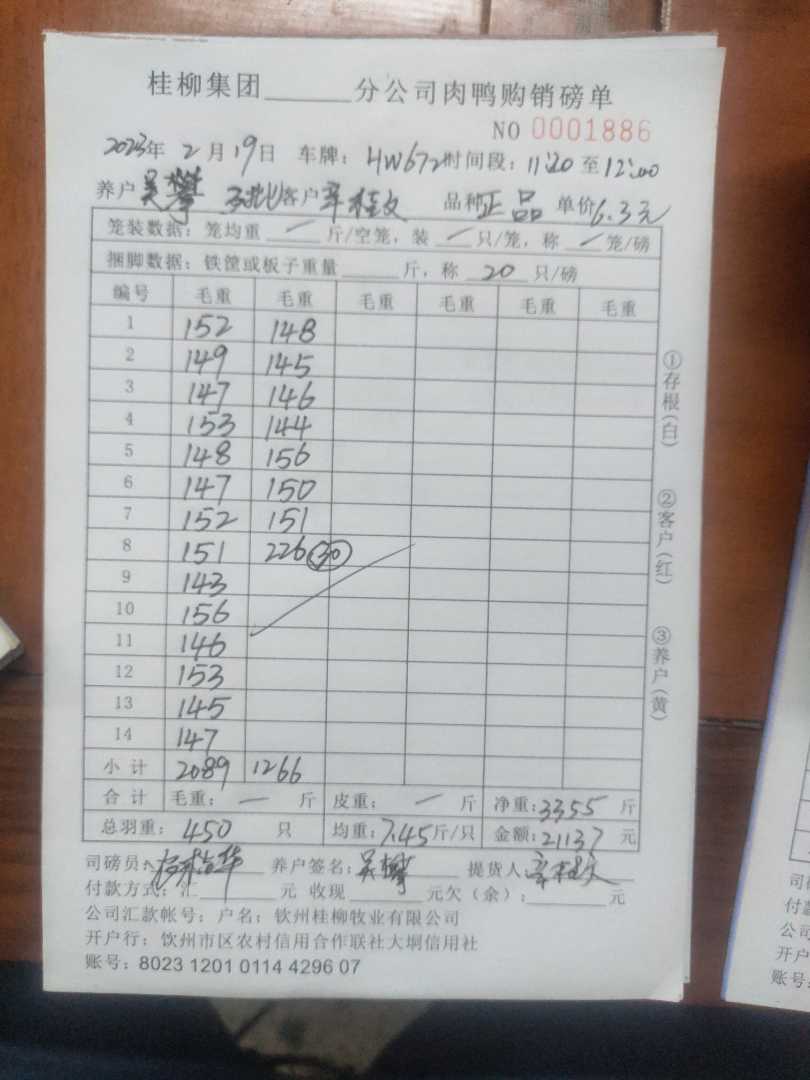 桂柳集团______分公司肉鸭购销磅单
NO 0001886
2023年 2月19日 车牌：HW672 时间段：11:20至12:00
养户 吴攀 客户 辛桂文 品种 正品 单价 6.3元
笼装数据：笼均重 / 斤/空笼，装 / 只/笼，称 / 笼/磅
捆脚数据：铁筐或板子重量______斤，称 20 只/磅
编号 毛重 毛重 毛重 毛重 毛重 毛重
1 152 148
2 149 145
3 147 146
4 153 144
5 148 156
6 147 150
7 152 151
8 151 226 30
9 143
10 156
11 146
12 153
13 145
14 147
小计 2089 1266
合计 毛重：一 斤 皮重：一 斤 净重：3355 斤
总羽重：450 只 均重：7.45斤/只 金额：21137 元
司磅员： 养户签名：吴攀 提货人：辛桂文
付款方式：汇______元 收现______元欠（余）：______元
公司汇款帐号：户名：钦州桂柳牧业有限公司
开户行：钦州市区农村信用合作联社大垌信用社
账号：8023 1201 0114 4296 07
①存根（白）
②客户（红）
③养户（黄）
司磅
付款
公司
开户
账号